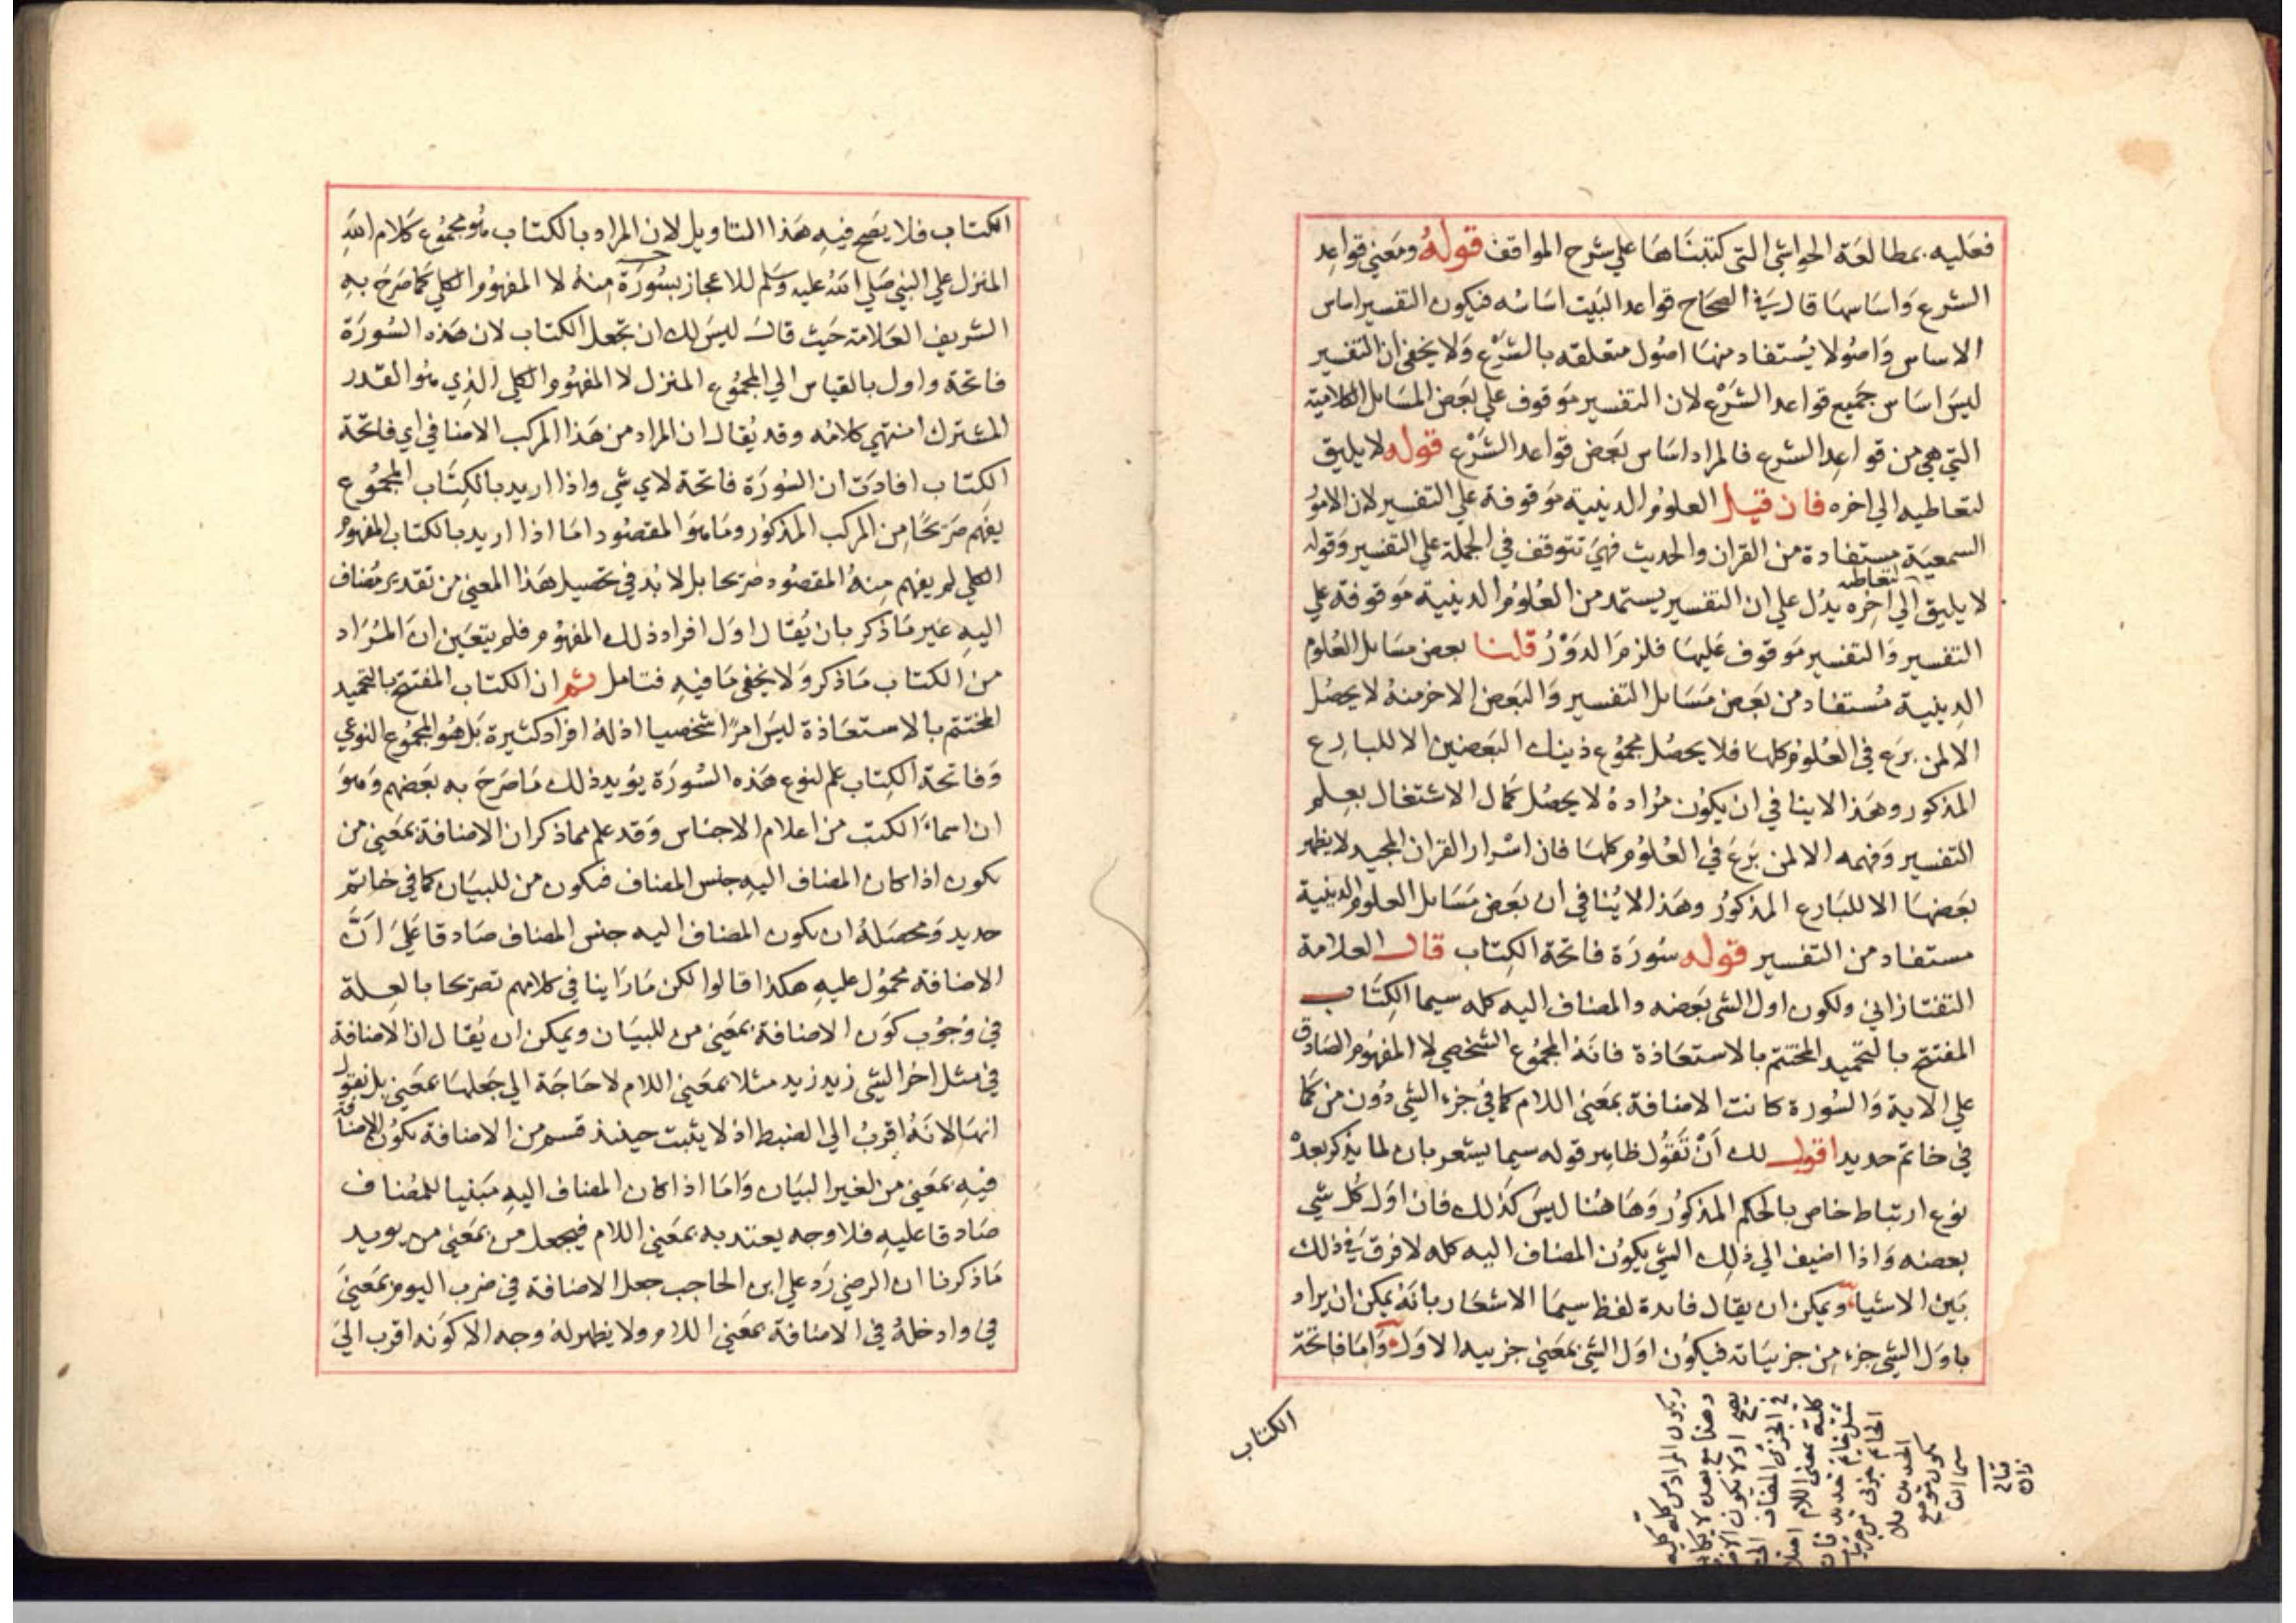 فعليه بمطالعة الحواشي التي كتبناها علي شرح المواقف قوله ومعني قواعد
الشرع واساسها قال في الصحاح قواعد البيت اساسه فيكون التفسير اساس
الاساس واصولا يستفاد منها اصول متعلقه بالشرع ولا يخفي ان التفسير
ليس اساس جميع قواعد الشرع لان التفسير موقوف علي بعض المسايل الكلامية
التي هي من قواعد الشرع فالمراد اساس بعض قواعد الشرع قوله لا يليق
لتعاطيه الي اخره فان قيل العلوم الدينية موقوفة علي التفسير لان الامور
السمعية مستفادة من القران والحديث فهي تتوقف في الجملة علي التفسير وقوله
لا يليق لتعاطيه الي اخره يدل علي ان التفسير يستمد من العلوم الدينية موقوفة علي
التفسير والتفسير موقوف عليها فلزم الدور قلنا بعض مسايل العلوم
الدينية مستفاد من بعض مسايل التفسير والبعض الاخر منه لا يحصل
الا لمن برع في العلوم كلها فلا يحصل مجموع ذينك البعضين الا للبارع
المذكور وهذا لا ينافي ان يكون مراده لا يحصل كمال الاشتغال بعلم
التفسير وفهمه الا لمن برع في العلوم كلها فان اسرار القران المجيد لا يظهر
بعضها الا للبارع المذكور وهذا لا ينافي ان بعض مسايل العلوم الدينية
مستفاد من التفسير قوله سورة فاتحة الكتاب قال العلامة
التفتازاني ولكون اول الشي بعضه والمضاف اليه كله سيما الكتاب
المفتتح بالتحميد المختتم بالاستعاذة فانه المجموع الشخصي لا المفهوم الصادق
علي الاية والسورة كانت الاضافة بمعني اللام كما في جزء الشي دون من كما
في خاتم حديد اقول لك أن تقول ظاهر قوله سيما يشعر بان لما يذكر بعد
نوع ارتباط خاص بالحكم المذكور وهاهنا ليس كذلك فان اول كل شي
بعضه واذا اضيف الي ذلك الشي يكون المضاف اليه كله لا فرق في ذلك
بين الاشياء ويمكن ان يقال فايدة لفظ سيما الاشعار بانه يمكن ان يراد
باول الشي جزء من جزيياته فيكون اول الشي بمعني جزييه الاول واما فاتحة
الكتاب
الكتاب فلا يصح فيه هذا التاويل لان المراد بالكتاب هو مجموع كلام الله
المنزل علي النبي صلي الله عليه وسلم للاعجاز بسورة منه لا المفهوم الكلي كما صرح به
الشريف العلامة حيث قال ليس لك ان تجعل الكتاب لان هذه السورة
فاتحة واول بالقياس الي المجموع المنزل لا المفهوم الكلي الذي هو القدر
المشترك انتهي كلامه وقد يقال ان المراد من هذا المركب الاضافي اي فاتحة
الكتاب افادت ان السورة فاتحة لاي شي واذا اريد بالكتاب المجموع
يفهم صريحا من المركب المذكور وما هو المقصود اما اذا اريد بالكتاب المفهوم
الكلي لم يفهم منه المقصود صريحا بل لا بد في تحصيل هذا المعني من تقدير مضاف
اليه غير ما ذكر بان يقال اول افراد ذلك المفهوم فلم يتعين ان المراد
من الكتاب ما ذكر ولا يخفي ما فيه فتامل ثم ان الكتاب المفتتح بالتحميد
المختتم بالاستعاذة ليس امرا شخصيا اذ له افراد كثيرة بل هو المجموع النوعي
وفاتحة الكتاب علم لنوع هذه السورة يويد ذلك ما صرح به بعضهم وهو
ان اسماء الكتب من اعلام الاجناس وقد علم مما ذكر ان الاضافة بمعني من
يكون اذا كان المضاف اليه جنس المضاف فيكون من للبيان كما في خاتم
حديد ومحصله ان يكون المضاف اليه جنس المضاف صادقا علي انّ
الاضافة محمول عليه هكذا قالوا لكن ما راينا في كلامهم تصريحا بالعلة
في وجوب كون الاضافة بمعني من للبيان ويمكن ان يقال ان الاضافة
في مثل اخر الشي زيد زيد مثلا بمعني اللام لا حاجة الي جعلها بمعني بل نقول
انها لانه اقرب الي الضبط اذ لا يثبت حينئذ قسم من الاضافة يكون الاضافة
فيه بمعني من لغير البيان واما اذا كان المضاف اليه مبنيا للمضاف
صادقا عليه فلا وجه يعتد به بمعني اللام فيجعل من بمعني من يويد
ما ذكرنا ان الرضي رد علي ابن الحاجب جعل الاضافة في ضرب اليوم بمعني
في وادخله في الاضافة بمعني اللام ولا يظهر له وجه الا كونه اقرب الي